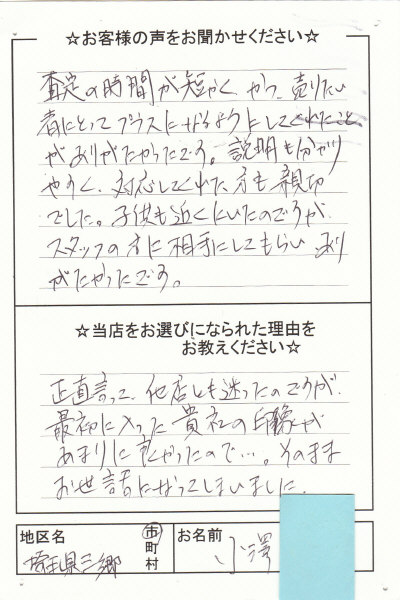 ☆お客様の声をお聞かせください☆
査定の時間が短かく、かつ、売りたい
者にとってプラスになるようにしてくれたこと
がありがたかったです。説明も分かり
やすく、対応してくれた方も親切
でした。子供も近くにいたのですが、
スタッフの方に相手にしてもらい、あり
がたかったです。
☆当店をお選びになられた理由を
お教えください☆
正直言って、他店とも迷ったのですが、
最初に入った貴社の印象が
あまりに良かったので…。そのまま
お世話になってしまいました。
地区名
埼玉県三郷
市
町
村
お名前
小澤